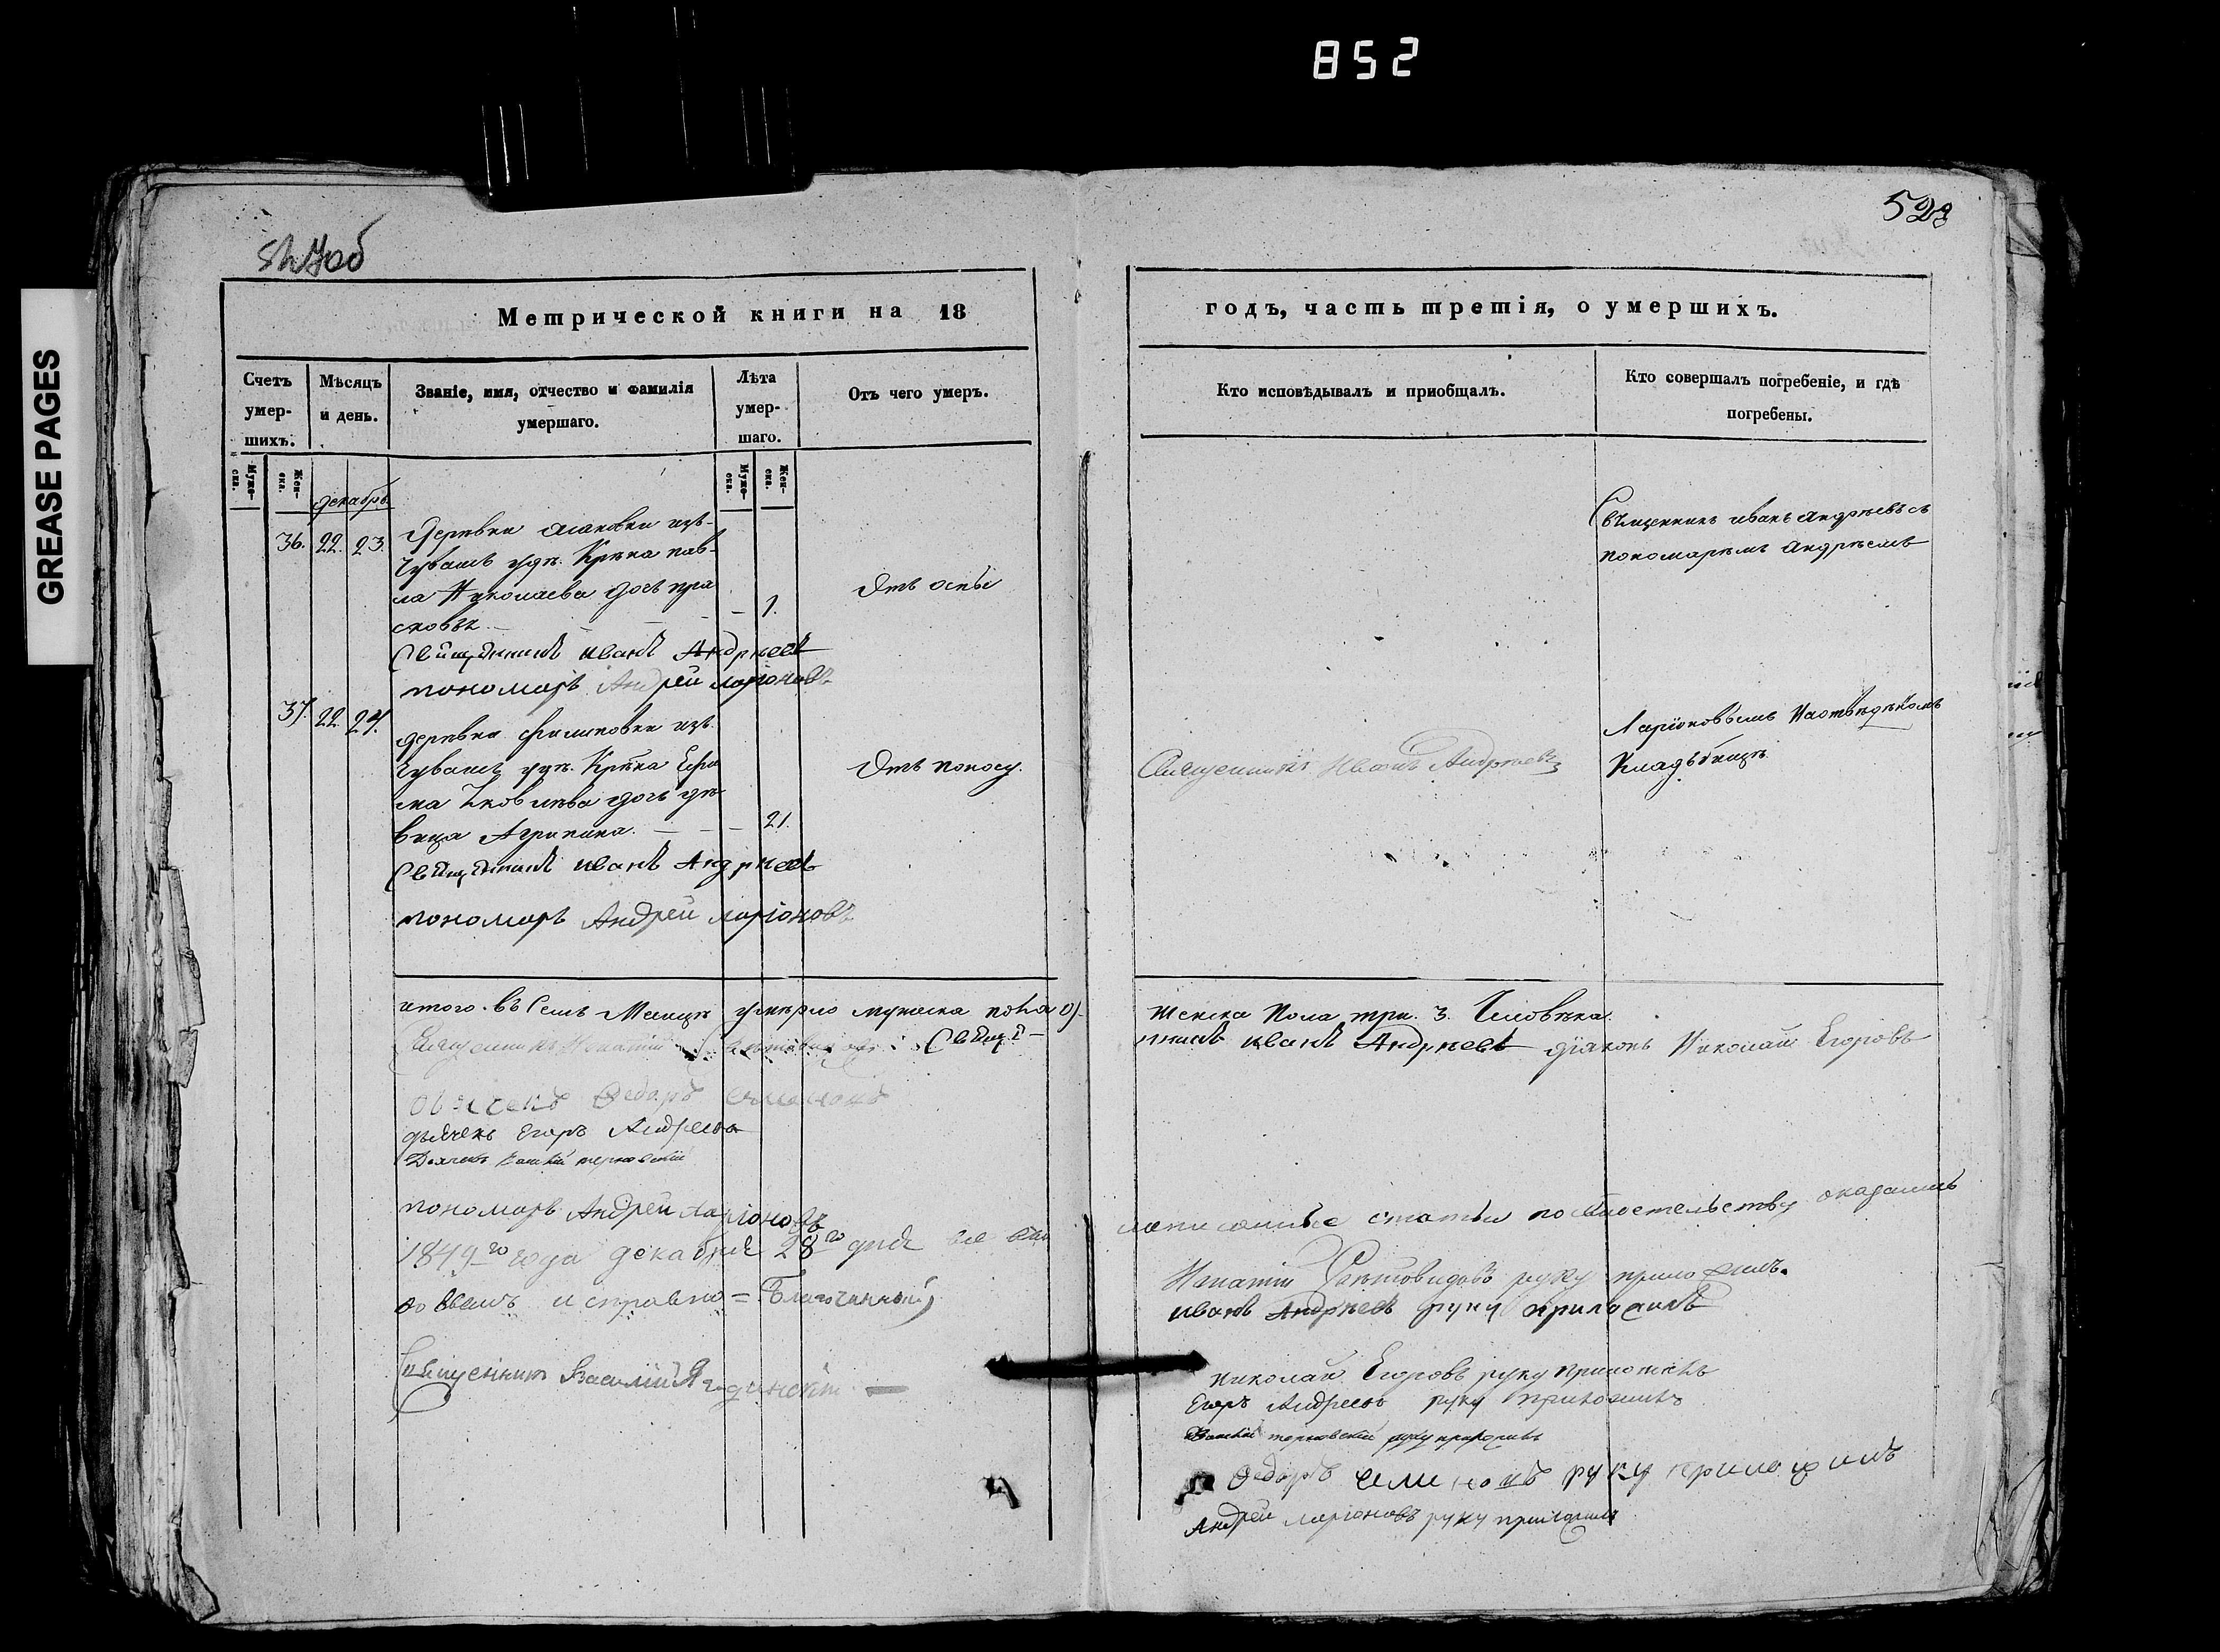 852
GREASE PAGES
528
Метрической книги на 18
годъ, часть третія, о умершихъ.
Счетъ умер-шихъ.
Мѣсяцъ и день.
Званіе, имя, отчество и фамилія умершаго.
Лѣта умер-шаго.
Отъ чего умеръ.
Кто исповѣдывалъ и приобщалъ.
Кто совершалъ погребеніе, и гдѣ погребены.
Муже-ска.
Жен-ска.
Муже-ска.
Жен-ска.
декабрь
36. 22. 23.
Деревни изъ
Чувашъ уд. Кр-на пав-
ла Николаева дочь пра
сковья
1.
Отъ оспы
Священникъ иванъ андреевъ съ
пономаремъ андреемъ
Священникъ иванъ Андреевъ
пономарь Андрей ларіоновъ
37. 22. 24.
деревни филиповки изъ
Чувашъ уд. Кр-на Ефи
ма Яковлева дочь дѣ
вица Агрипина.
21.
Отъ поносу.
Священникъ Иванъ Андреевъ
Ларіоновымъ
Кладбищѣ
Священникъ иванъ Андреевъ
пономарь Андрей ларіоновъ
итого въ семъ Месяцѣ умерло мужска пола 0)
женска Пола три. 3. Человѣка.
Священникъ Игнатій Святовидовъ Священ-
никъ иванъ Андреевъ діаконъ Николай Егоровъ
дьячекъ Федоръ
дьячекъ Егоръ Андреевъ
Дьячекъ терновскій
пономарь Андрей Ларіоновъ
1849го года декабря 28го дня все
статьи по свидетельству оказались
исправно = Благочинный
Священникъ Василій Ягодинскій
Игнатій Святовидовъ руку приложилъ.
иванъ Андреевъ руку приложилъ
Николай Егоровъ руку приложилъ
Егоръ Андреевъ руку приложилъ
терновскій руку приложилъ
Федоръ руку приложилъ
Андрей ларіоновъ руку приложилъ